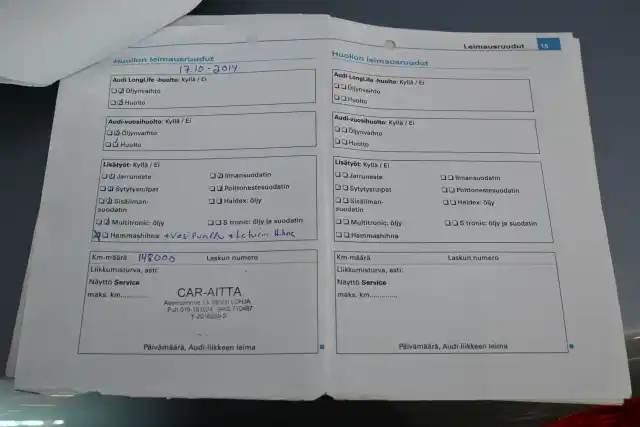 Leimausruudut 15
Huollon leimausruudut
17.10-2014
Audi LongLife -huolto: Kyllä / Ei
Öljynvaihto
Huolto
Audi-vuosihuolto: Kyllä / Ei
Öljynvaihto
Huolto
Lisätyöt: Kyllä / Ei
Jarruneste
Ilmansuodatin
Sytytystulpat
Polttonestesuodatin
Sisäilman-
suodatin
Haldex: öljy
Multitronic: öljy
S tronic: öljy ja suodatin
Hammashihna
Km-määrä 148000 Laskun numero
Liikkumisturva, asti:
Näyttö Service
maks. km.............
CAR-AITTA
LOHJA
Päivämäärä, Audi-liikkeen leima
Huollon leimausruudut
Audi-LongLife -huolto: Kyllä / Ei
Öljynvaihto
Huolto
Audi-vuosihuolto: Kyllä / Ei
Öljynvaihto
Huolto
Lisätyöt: Kyllä / Ei
Jarruneste
Ilmansuodatin
Sytytystulpat
Polttonestesuodatin
Sisäilman-
suodatin
Haldex: öljy
Multitronic: öljy
S tronic: öljy ja suodatin
Hammashihna
Km-määrä Laskun numero
Liikkumisturva, asti:
Näyttö Service
maks. km.............
Päivämäärä, Audi-liikkeen leima